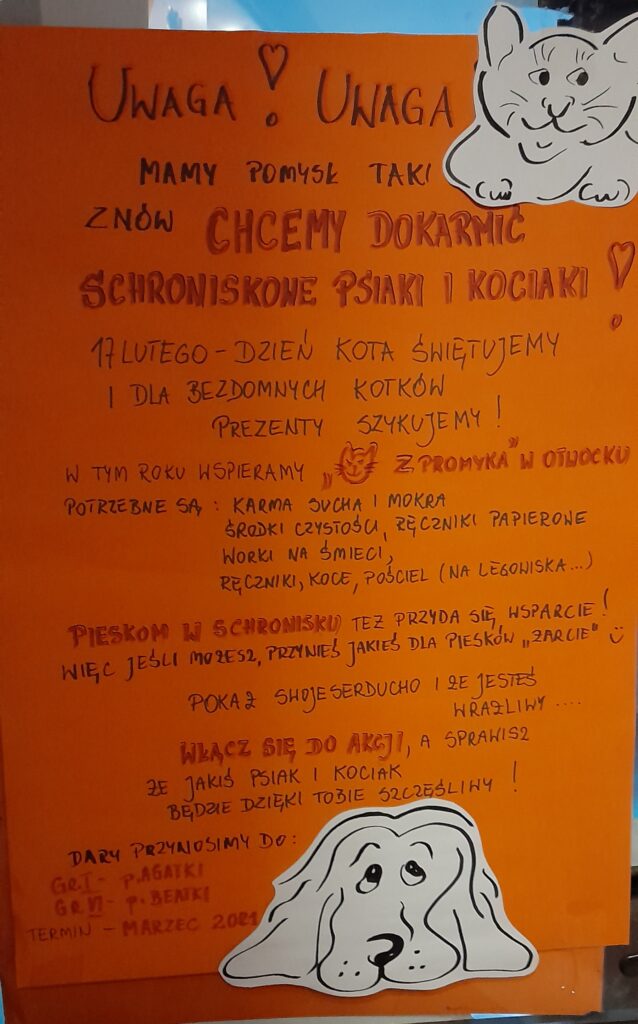 UWAGA! UWAGA
MAMY POMYSŁ TAKI
ZNÓW CHCEMY DOKARMIĆ
SCHRONISKOWE PSIAKI I KOCIAKI!
17 LUTEGO - DZIEŃ KOTA ŚWIĘTUJEMY
I DLA BEZDOMNYCH KOTKÓW
PREZENTY SZYKUJEMY!
W TYM ROKU WSPIERAMY „ Z PROMYKA" W OTWOCKU
POTRZEBNE SĄ: KARMA SUCHA I MOKRA
ŚRODKI CZYSTOŚCI, RĘCZNIKI PAPIEROWE
WORKI NA ŚMIECI,
RĘCZNIKI, KOCE, POŚCIEL (NA LEGOWISKA...)
PIESKOM W SCHRONISKU TEŻ PRZYDA SIĘ, WSPARCIE!
WIĘC JEŚLI MOŻESZ, PRZYNIEŚ JAKIEŚ DLA PIESKÓW „ŻARCIE"
POKAŻ SWOJE SERDUCHO I ŻE JESTEŚ
WRAŻLIWY ....
WŁĄCZ SIĘ DO AKCJI, A SPRAWISZ
ŻE JAKIŚ PSIAK I KOCIAK
BĘDZIE DZIĘKI TOBIE SZCZĘŚLIWY!
DARY PRZYNOSIMY DO:
GR.I - P.AGATKI
GR.VI - P.BEATKI
TERMIN - MARZEC 2021